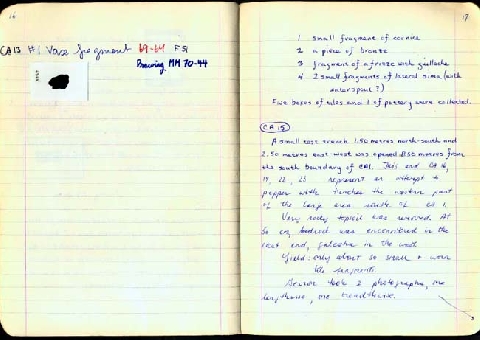 16
CA13 #1 Vase fragment 69-64 FSI
Drawing MM 70-44
17
1 small fragment of cornice
2 a piece of bronze
3 fragment of a frieze with guilloche
4 2 small fragments of lateral sima (with
waterspout?)
Five boxes of tiles and 1 of pottery were collected.
CA15
A small test trench 1.50 metres north-south and
2.50 metres east-west was opened 8.50 metres from
the south boundary of CA1. This and CA 16,
19, 22, 23 represent an attempt to
pepper with trenches the eastern part
of the large area south of CA 1.
Very rocky topsoil was removed. At
50 cm bedrock was encountered in the
east end, galestra in the west.
Yield: only about 50 small & worn
tile fragments
Senior took 2 photographs, one
lengthwise, one breadthwise.